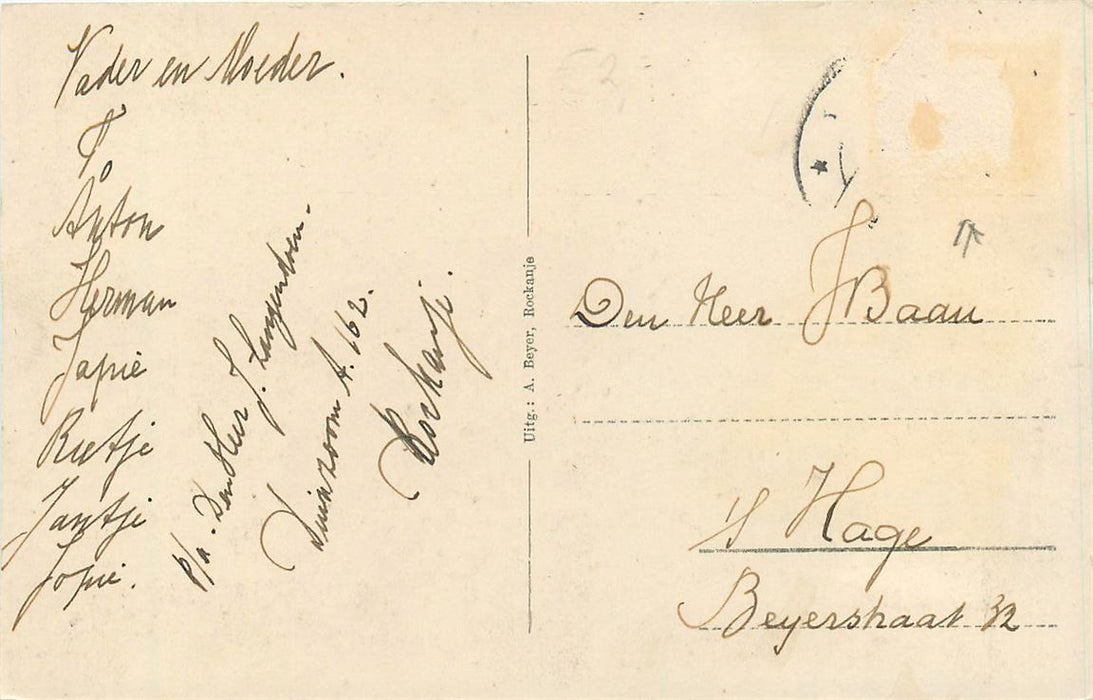 Vader en Moeder.
T.
Anton
Herman
Japie
Rietje
Jantje
Jopie.
p/a. Den Heer J. Langendoen.
Duinzoom A. 162.
Rockanje.
Uitg.: A. Beyer, Rockanje
Den Heer J Baan
's Hage
Beyerstraat 32